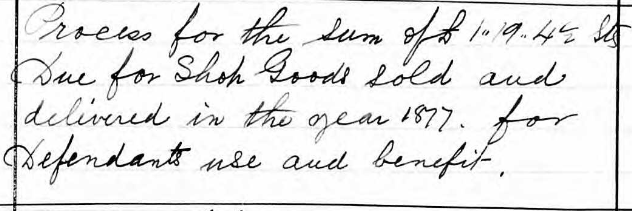 Process for the sum of £1..19..4½ Stg
Due for Shop Goods sold and
delivered in the year 1877. for
Defendants use and benefit.